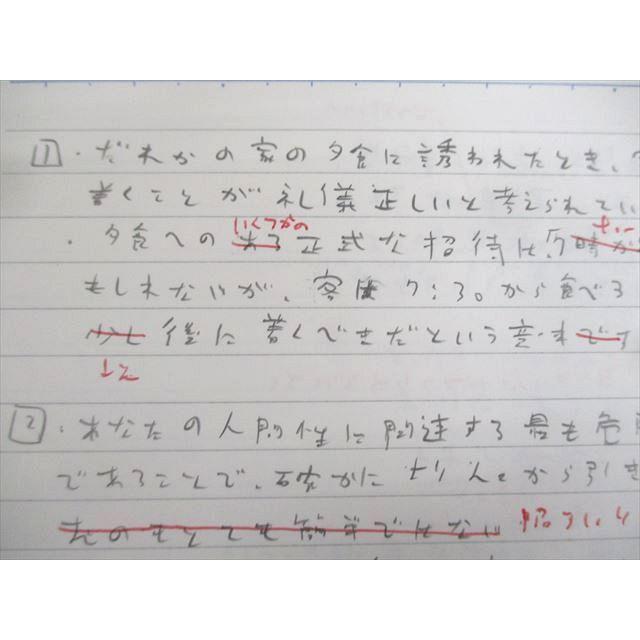 1 ・だれかの家の夕食に誘われたとき、
着くことが礼儀正しいと考えられてい
いくつかの
・夕食への ある 正式な招待は
もしれないが、客は7:30から食べる
少し 後に着くべきだという意味です
・あなたの人間性に関連する最も危
2
であることで、確かに から引き
それもとても簡単ではない